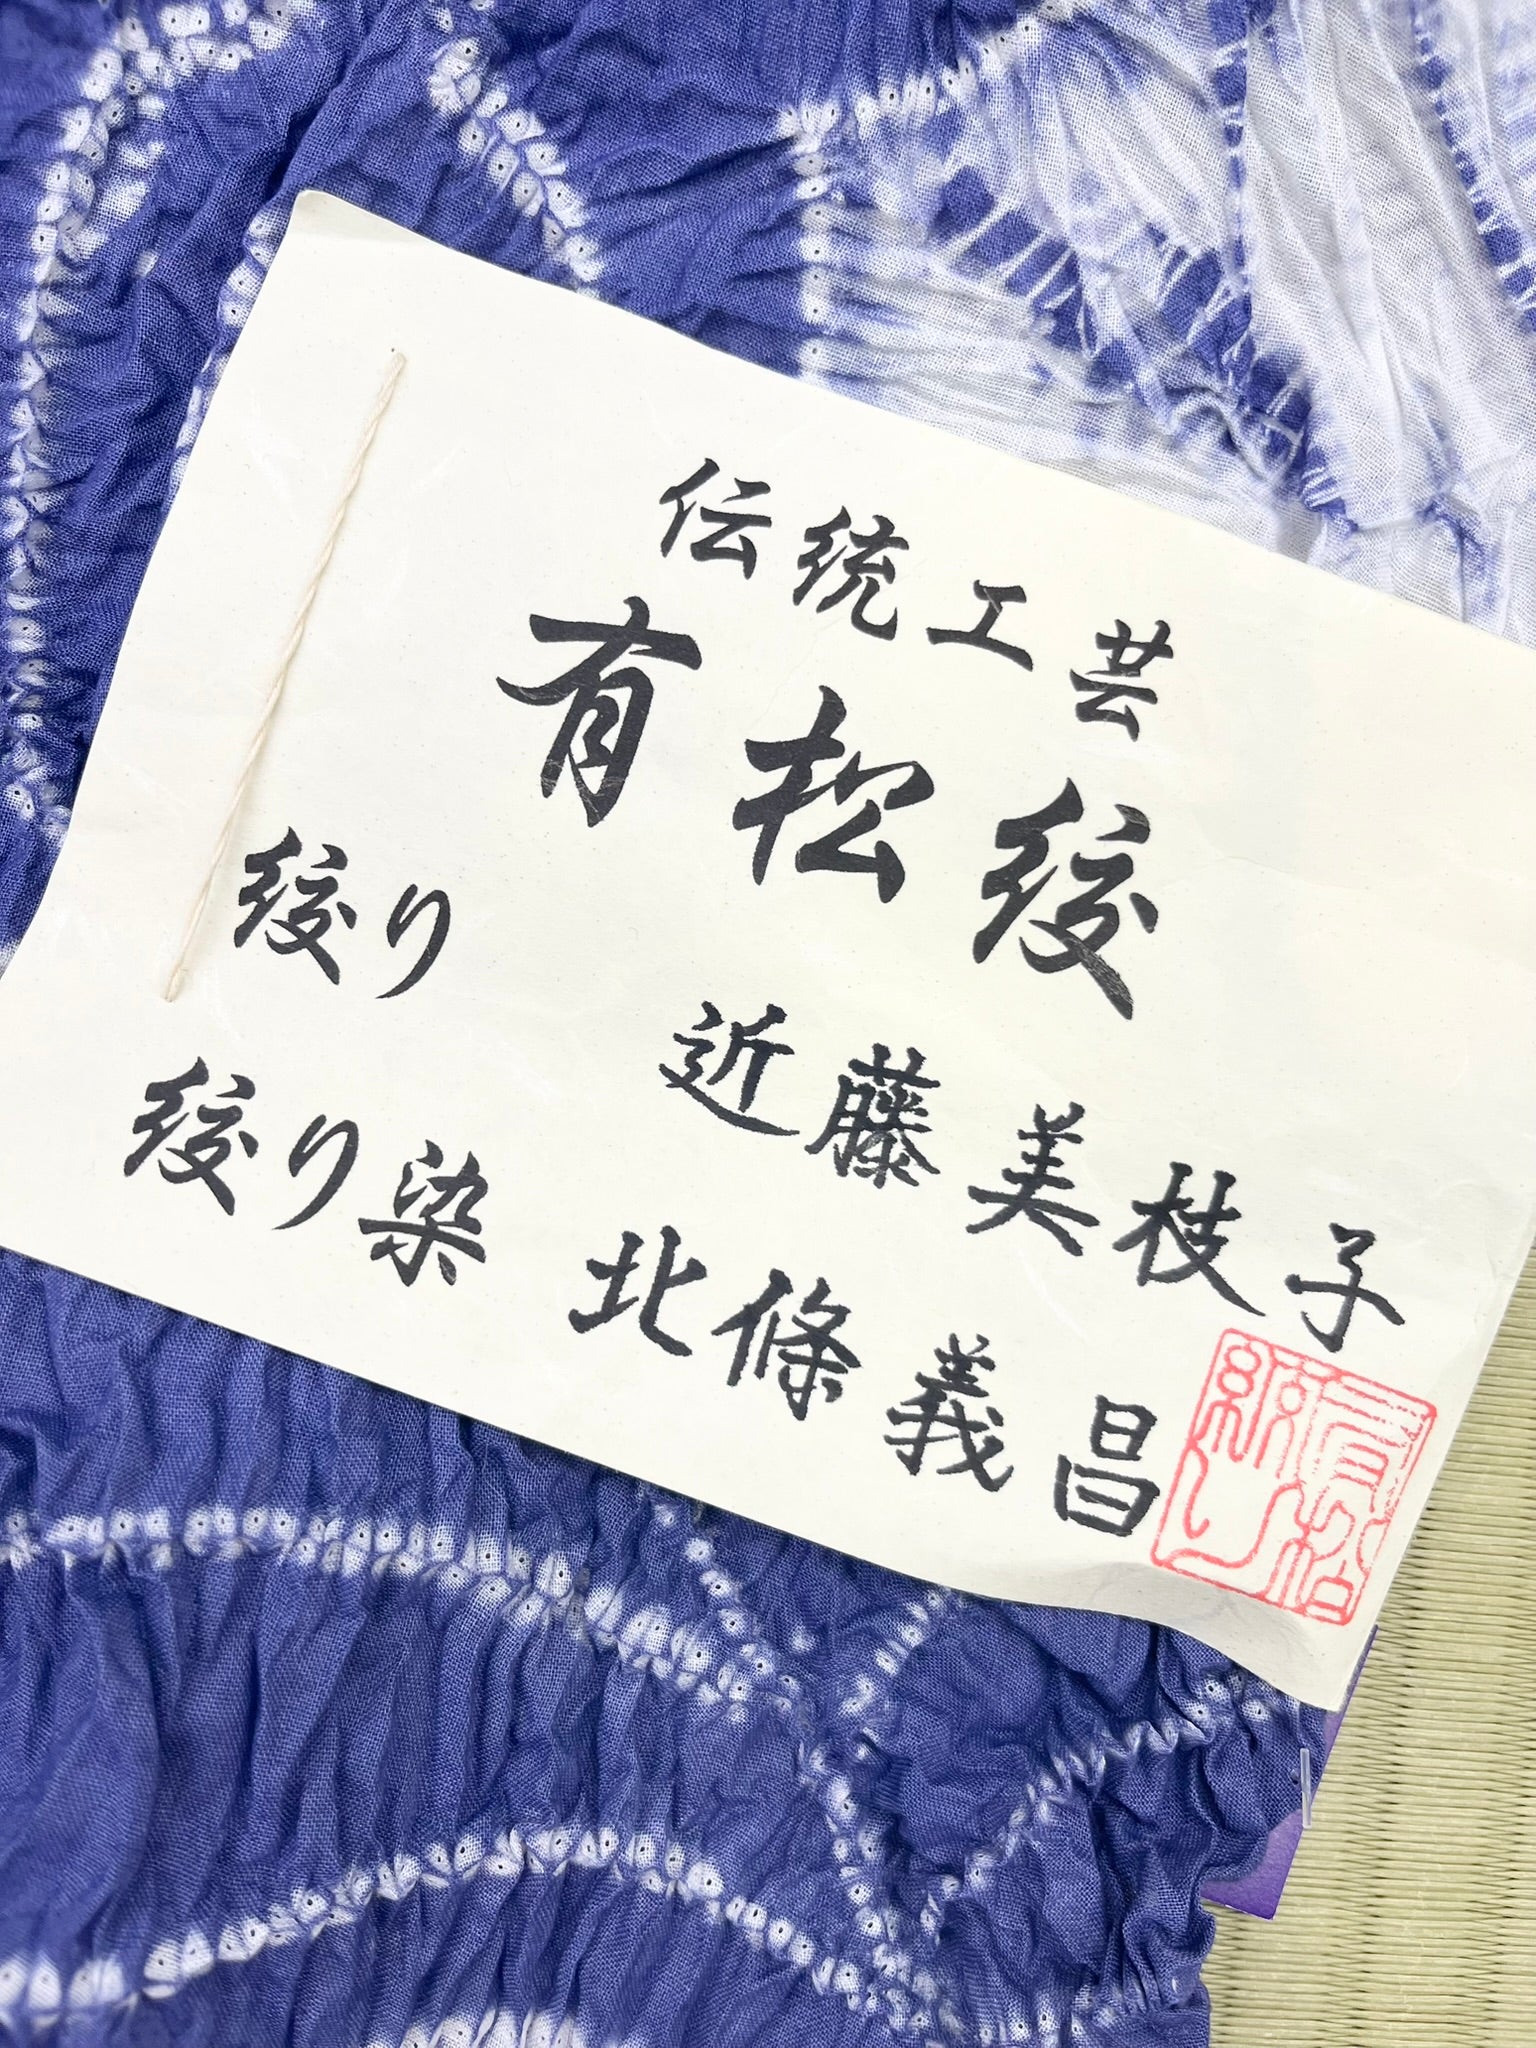 伝統工芸
有松絞
絞り 近藤美枝子
絞り染 北條義昌
有松絞